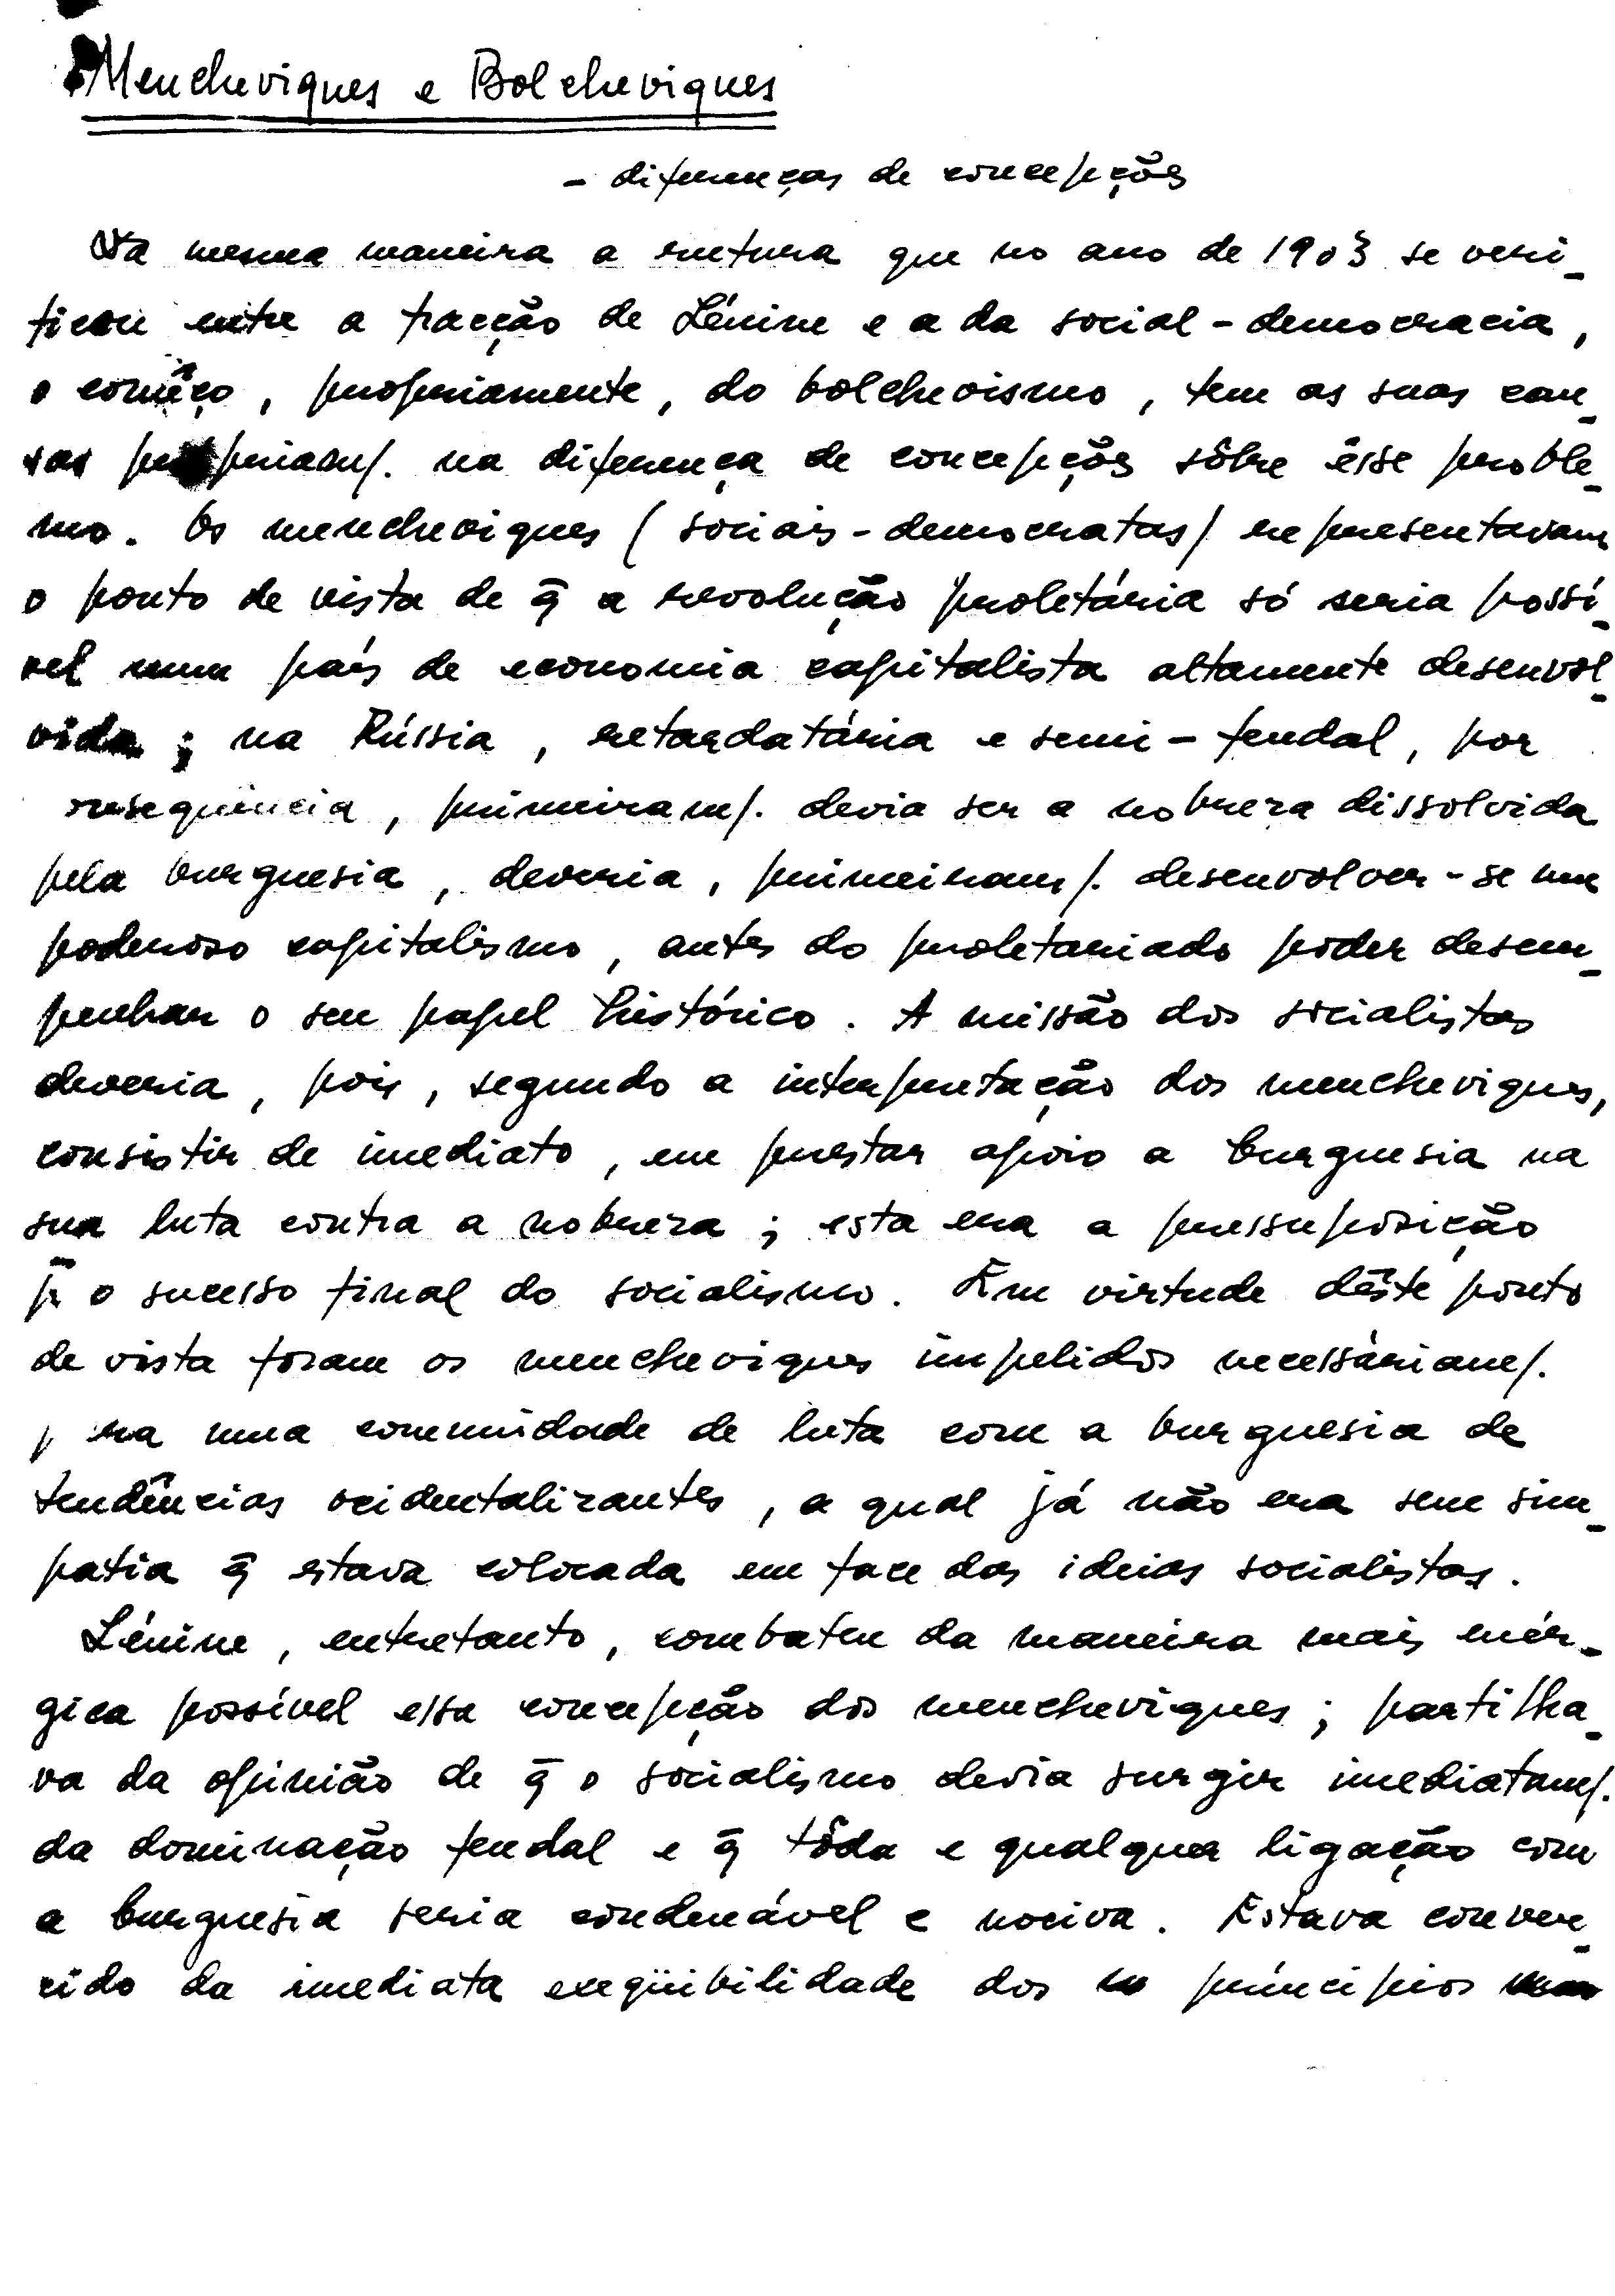 Mencheviques e Bolcheviques
- diferenças de concepções
Da mesma maneira a ruptura que no ano de 1903 se veri-
ficou entre a facção de Lénine e a da social-democracia,
o comêço, propriamente, do bolchevismo, tem as suas cau-
sas propriam/. na diferença de concepções sôbre êsse proble-
ma. Os mencheviques (sociais-democratas) representavam
o ponto de vista de q̃ a revolução proletária só seria possí-
vel num país de economia capitalista altamente desenvol-
vida; na Rússia, retardatária e semi-feudal, por
consequência, primeiram/. devia ser a nobreza dissolvida
pela burguesia, deveria, primeiram/. desenvolver-se um
poderoso capitalismo, antes do proletariado poder desem-
penhar o seu papel histórico. A missão dos socialistas
deveria, pois, segundo a interpretação dos mencheviques,
consistir de imediato, em prestar apoio a burguesia na
sua luta contra a nobreza; esta era a pressuposição
p̃ o sucesso final do socialismo. Em virtude dêste ponto
de vista foram os mencheviques impelidos necessàriam/.
para uma comunidade de luta com a burguesia de
tendências ocidentalizantes, a qual já não era sem sim-
patia q̃ estava colocada em face das ideias socialistas.
Lénine, entretanto, combateu da maneira mais enér-
gica possível essa concepção dos mencheviques; partilha-
va da opinião de q̃ o socialismo devia surgir imediatam/.
da dominação feudal e q̃ tôda e qualquer ligação com
a burguesia seria condenável e nociva. Estava conven-
cido da imediata exeqüibilidade dos princípios